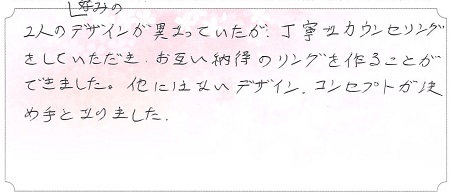 好みの
2人のデザインが異なっていたが、丁寧なカウンセリング
をしていただき、お互い納得のリングを作ることが
できました。他にはないデザイン、コンセプトが決
め手となりました.